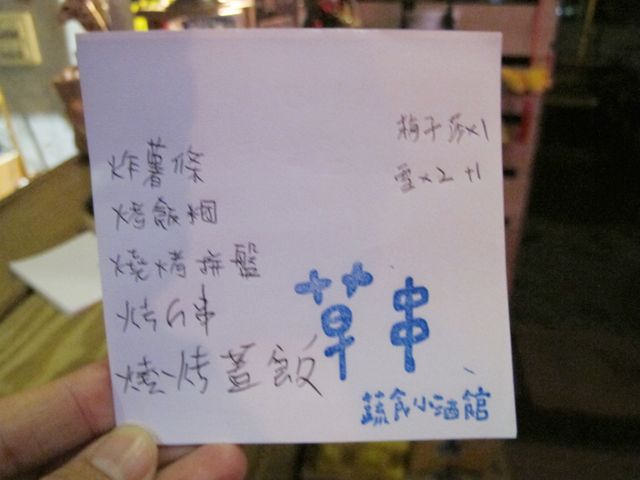 梅子莎x1
雪x2 +1
炸薯條
烤飯糰
燒烤拼盤
燒烤蓋飯
草串
蔬食小酒館